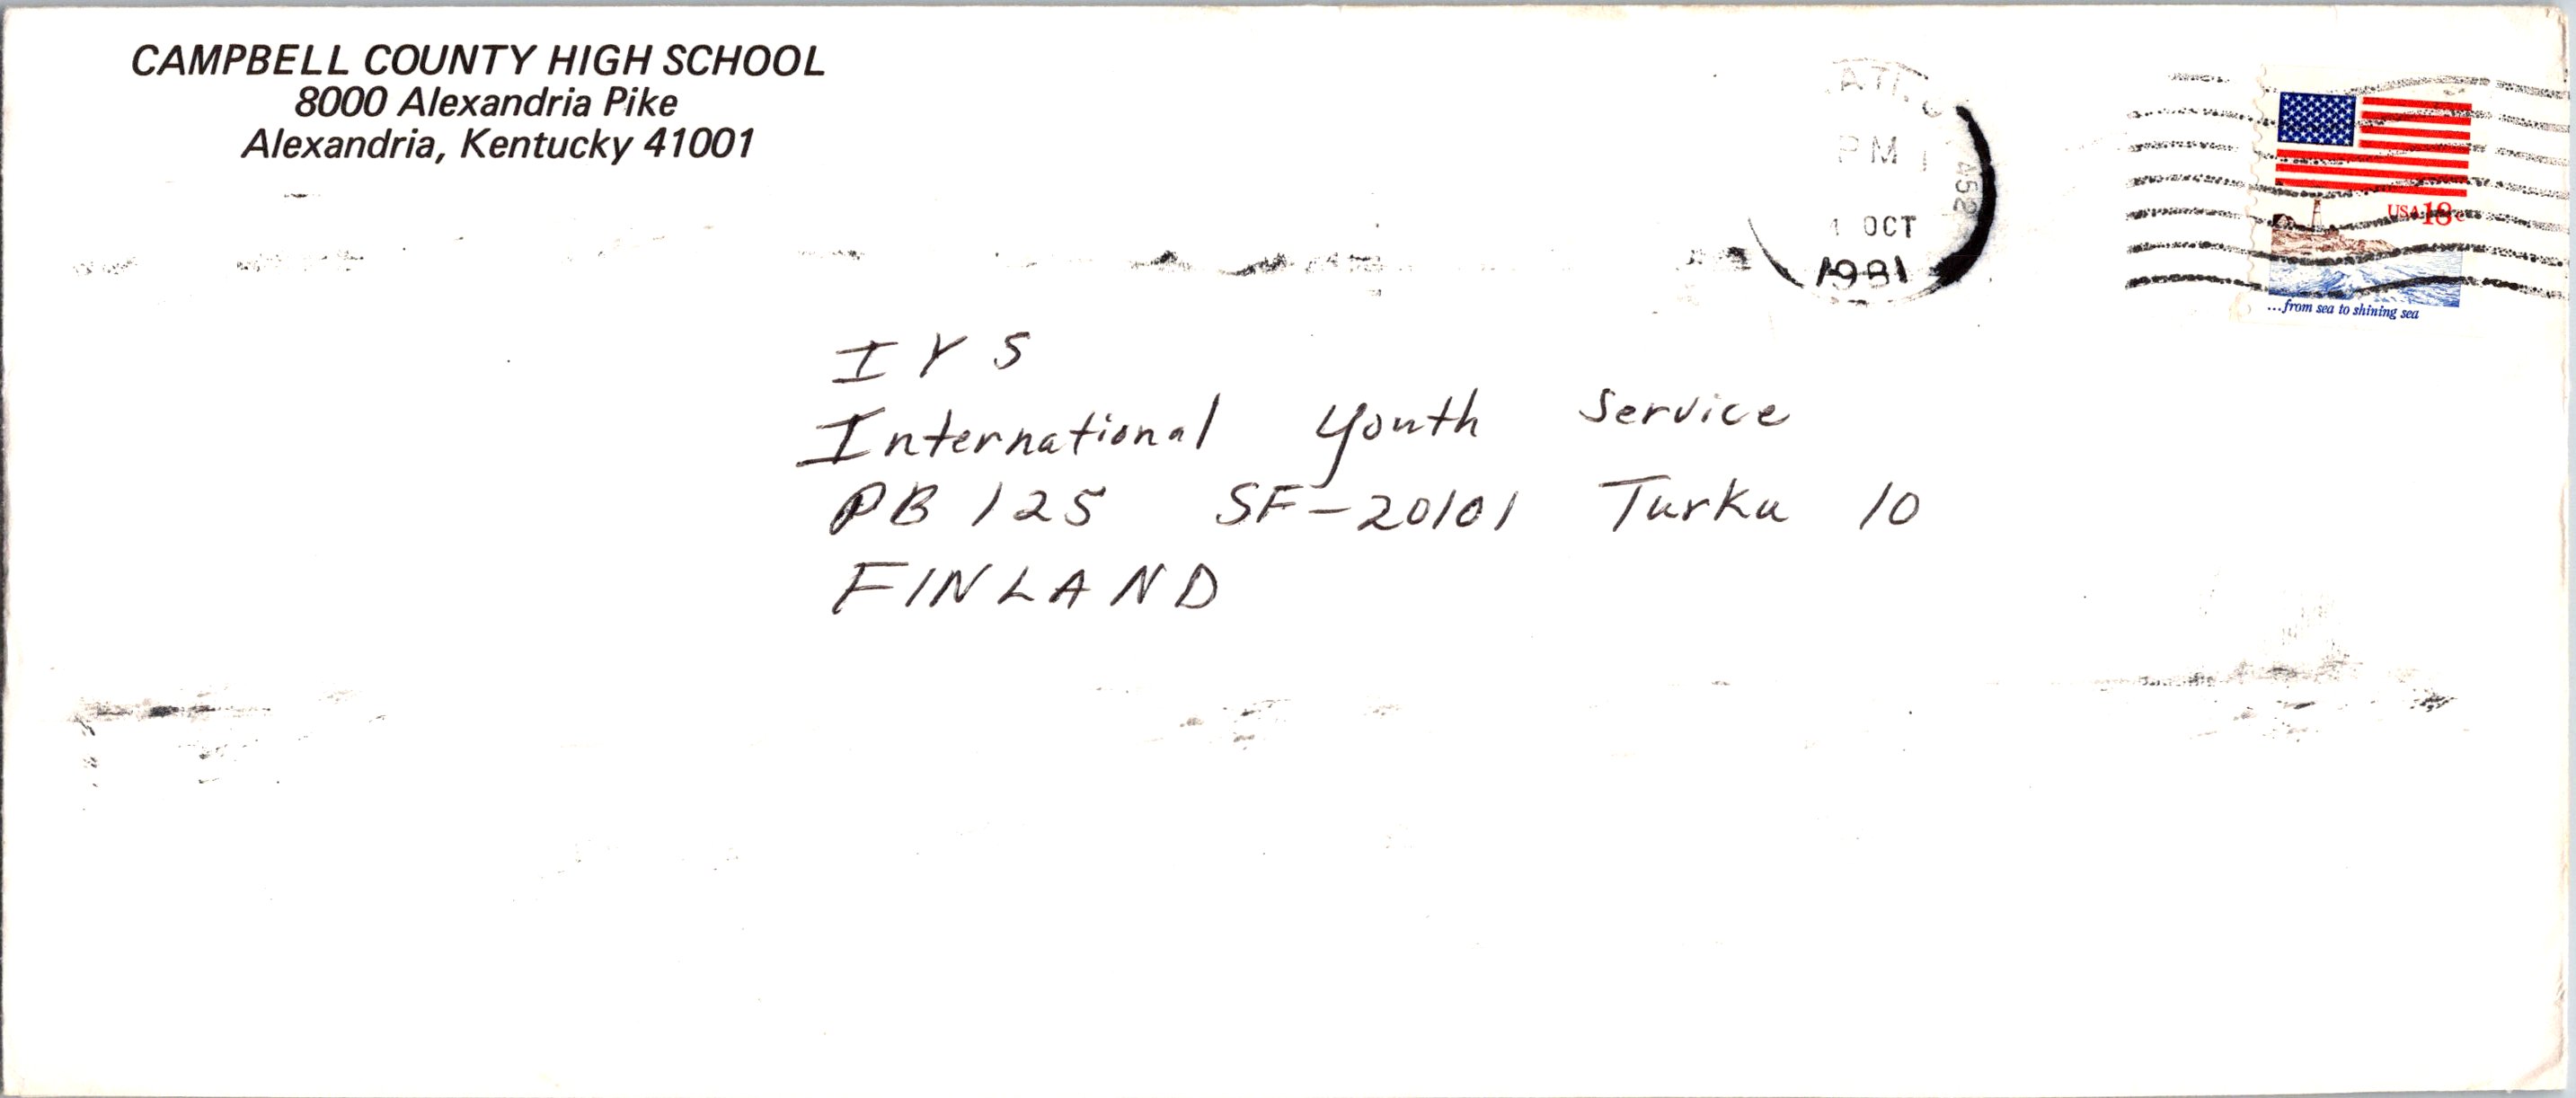 CAMPBELL COUNTY HIGH SCHOOL
8000 Alexandria Pike
Alexandria, Kentucky 41001
PM
OCT
1981
452
USA 18c
...from sea to shining sea
IYS
International Youth Service
PB 125 SF-20101 Turku 10
FINLAND